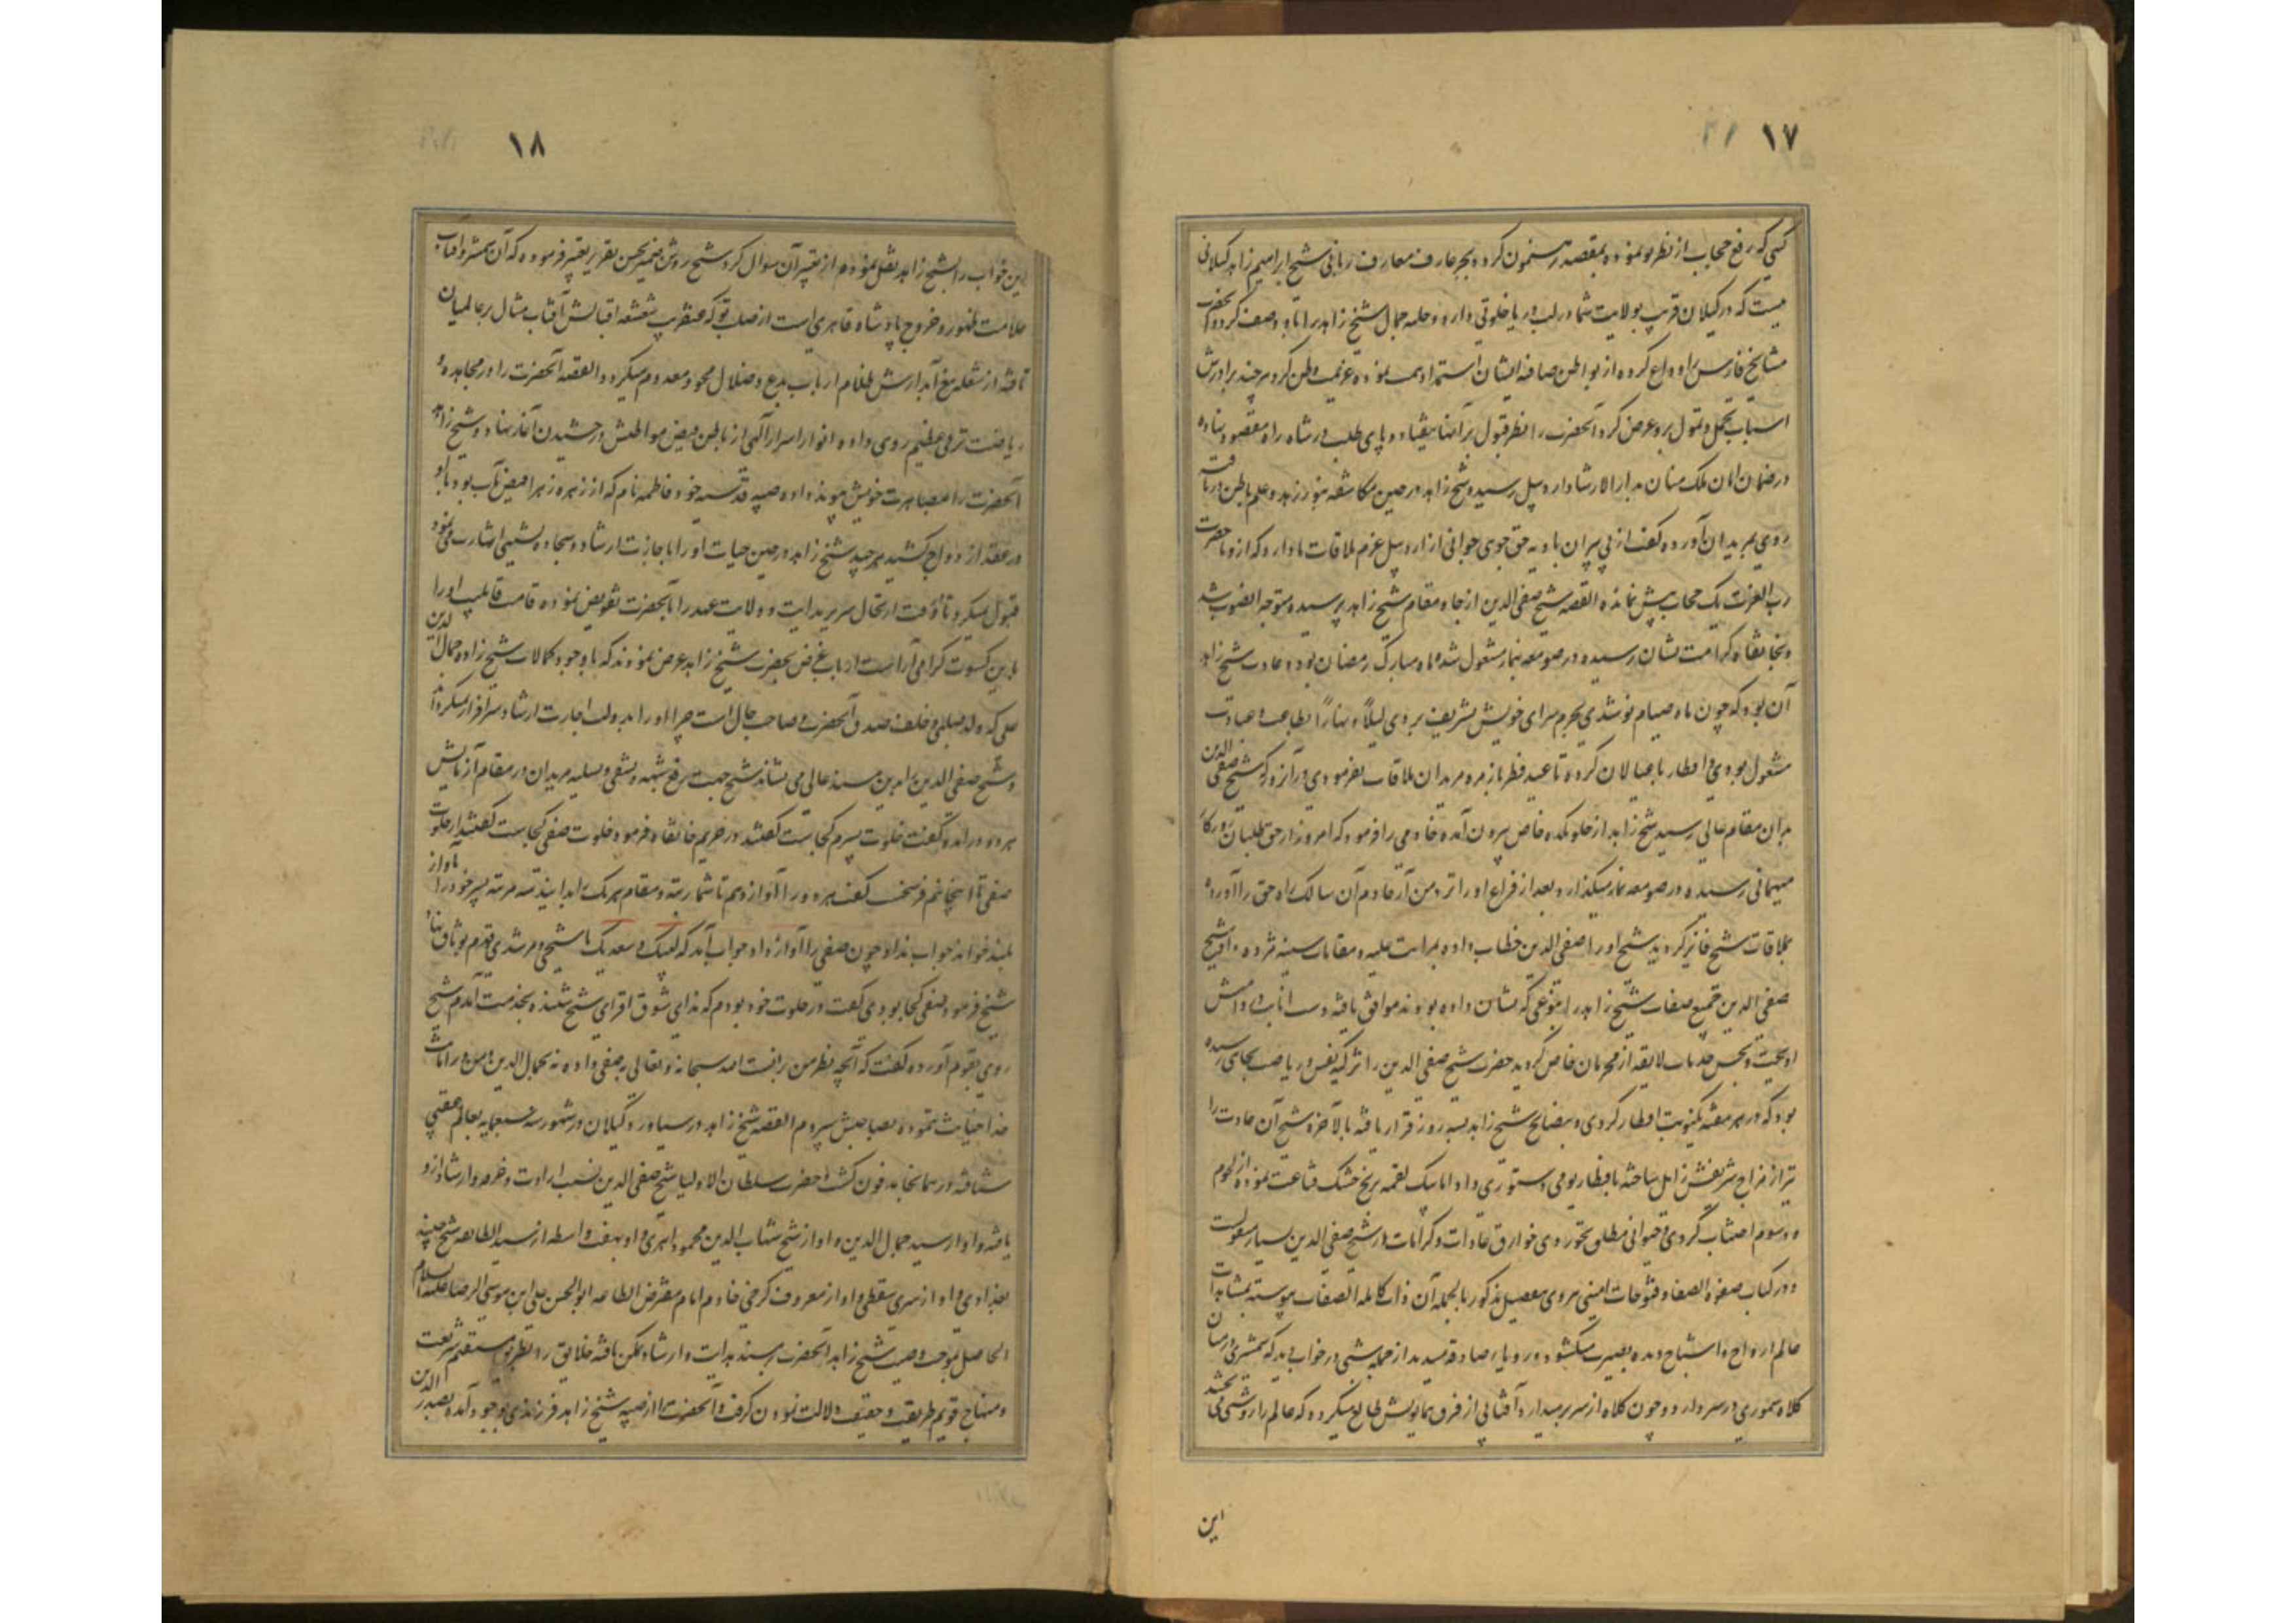 ۱۷
کسی که رفع حجاب از نظر تو نموده بمقصد رهنمون گردد بجز عارف معارف ربانی شیخ ابراهیم زاهد کیلانی
نیست که در کیلان قریب بولایت شما در لب دریا خلوتی دارد و حلیه جمال شیخ زاهد را باو وصف کرد و آنحضرت
مشایخ فارس را وداع کرده از بواطن صافیه ایشان استمداد همت نموده عزیمت وطن کرد هر چند برادرش
اسباب تجمل و تمول برو عرض کرد آنحضرت را نظر قبول بر آنها نیفتاد و پای طلب در شاه راه مقصود نهاده
در ضمان امان ملک منان بدار الارشاد اردبیل رسید و شیخ زاهد در حین مکاشفه بنور زهد و علم باطن دریافته
روی بمریدان آورده گفت از پی پیران بادیه حق جوی جوانی از اردبیل عزم ملاقات ما دارد که ازو تا حضرت
رب العزت یک حجاب بیش نمانده القصه شیخ صفی الدین از جا و مقام شیخ زاهد پرسیده متوجه الصوب شد
و بخانقاه کرامت نشان رسیده در صومعه بنماز مشغول شد ماه مبارک رمضان بود و عادت شیخ زاهد
آن بود که چون ماه صیام نو شدی بحرم سرای خویش تشریف بردی لیلاً و نهاراً بطاعت و عبادت
مشغول بودی و افطار با عیالان کرده تا عید فطر با زمره مریدان ملاقات نفرمودی در آنروز که شیخ صفی الدین
بدان مقام عالی رسید شیخ زاهد از خلوتکده خاص بیرون آمده خادمی را فرمود که امروز از حق طلبان
میهمانی رسیده در صومعه نماز میکذارد بعد از فراغ او را نزد من آر خادم آن سالک راه حق را آورده
بملاقات شیخ فایز کردید شیخ او را صفی الدین خطاب داده بمراتب علیه و مقامات سنیه مژده داد شیخ
صفی الدین جمیع صفات شیخ زاهد را بنوعی که نشان داده بودند موافق یافته دست انابت در دامنش
آویخت و بحسن خدمات لایقه از محرمان خاص گردید حضرت شیخ صفی الدین را تزکیه نفس و ریاضت بجای رسیده
بود که در هر هفته یکنوبت افطار کردی و بنصایح شیخ زاهد بسه روز قرار یافته بالاخره شیخ آن عادت را
نیز از مزاج شریفش زایل ساخته بافطار یومی دستوری داد اما بیک لقمه برنج خشک قناعت نموده از لحوم
و دسوم اجتناب کردی و حیوانی مطلق نخوردی خوارق عادات و کرامات از شیخ صفی الدین بسیار منقولست
و در کتاب صفوة الصفا و فتوحات امینی هروی مفصل مذکور بالجمله آن ذات کامله الصفات پیوسته بمشاهدات
عالم ارواح و اشباح دیده بصیرت میکشود و رویاء صادقه میدید از جمله شبی در خواب دید که شمشیری در میان و
کلاه سموری در سر دارد و چون کلاه از سر برمیدارد آفتابی از فرق همایونش طالع میکردد که عالم را روشنی می بخشد
این
۱۸
این خواب را بشیخ زاهد نقل نموده از تعبیر آن سوال کرد شیخ روشن ضمیر بحسن تقریر تعبیر فرموده که آن شمشیر و آفتاب
علامت ظهور و خروج پادشاه قاهری است از صلب تو که عنقریب شعشعه اقبالش آفتاب مثال بر عالمیان
تافته از شعله تیغ آبدارش ظلام ارباب بدع و ضلال محو و معدوم میکردد القصه آنحضرت را در مجاهده و
ریاضت ترقی عظیم روی داده انوار اسرار آلهی از باطن فیض مواطنش درخشیدن آغاز نهاد و شیخ زاهد
آنحضرت را بمصاهرت خویش پیوند داده صبیه قدسیه خود فاطمه نام که از زهره زهرا فیض یاب بود باو
در عقد ازدواج کشید هر چند شیخ زاهد در حین حیات او را باجازت ارشاد و سجاده نشینی اشارت می نمود
قبول نمیکرد تا وقت ارتحال سریر هدایت و ولایت عهد را بآنحضرت تفویض نموده قامت قابلیت او را
باین کسوت گرامی آراست ارباب غرض بحضرت شیخ زاهد عرض نمودند که با وجود کمالات شیخ زاده جمال الدین
علی که ولد صلبی و خلف صدق آنحضرت و صاحب حال است چرا او را بدولت اجازت ارشاد سرافراز نمیکردانند
و شیخ صفی الدین را بدین مسند عالی می نشاند شیخ جهت رفع شبهه و تشفی و تسلیه مریدان در مقام آزمایش
هر دو در آمد و گفت خلوت پسرم کجاست گفتند در حریم خانقاه فرمود خلوت صفی کجاست گفتند از خلوت
صفی تا اینجا نیم فرسخ گفت هر دو را آواز دهم تا شما رتبه و مقام هر یک را بدانید سه مرتبه پسر خود را بآواز
بلند خواند جواب نداد چون صفی را آواز داد جواب آمد که لبیک و سعدیک یا شیخی و مرشدی
شیخ فرمود صفی کجا بودی گفت در خلوت خود بودم که ندای شوق افزای شیخ شنیده بخدمت آمدم شیخ
روی بقوم آورده گفت که آنچه نظر من یافت الله سبحانه و تعالی به صفی داده نه بجمال الدین و من در امانت
خدا خیانت ننموده بصاحبش سپردم القصه شیخ زاهد در سیاورود کیلان در شهور سنه سبعمایه بعالم عقبی
شتافته در همانجا مدفون کشت حضرت سلطان الاولیا شیخ صفی الدین نسب ارادت و خرقه و ارشاد ازو
یافته و او از سید جمال الدین و او از شیخ شهاب الدین محمود اهری و او بهفت واسطه از سید الطایفه شیخ جنید
بغدادی و او از سری سقطی و او از معروف کرخی خادم امام مفترض الطاعه ابو الحسن علی ابن موسی الرضا علیه السلام
الحاصل بموجب وصیت شیخ زاهد آنحضرت بر مسند هدایت و ارشاد تمکن یافته خلایق را بطریق مستقیم شریعت
و منهاج قویم طریقت و حقیقت دلالت نمودن گرفت و آنحضرت را از صبیه شیخ زاهد فرزندی بوجود آمده بصدر الدین